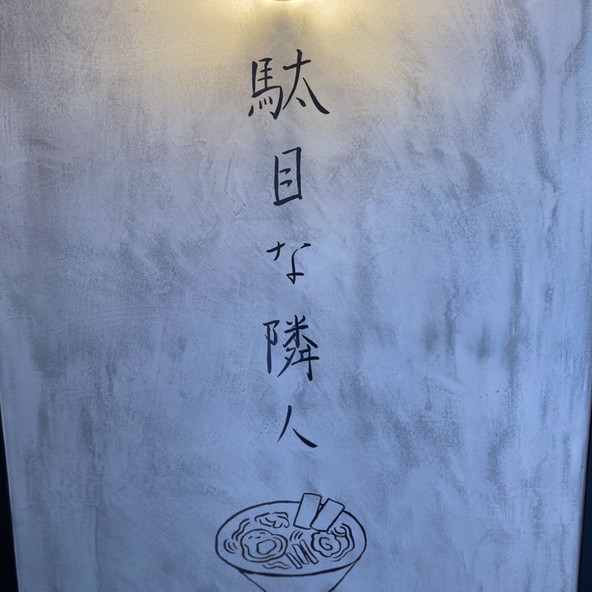 駄目な隣人